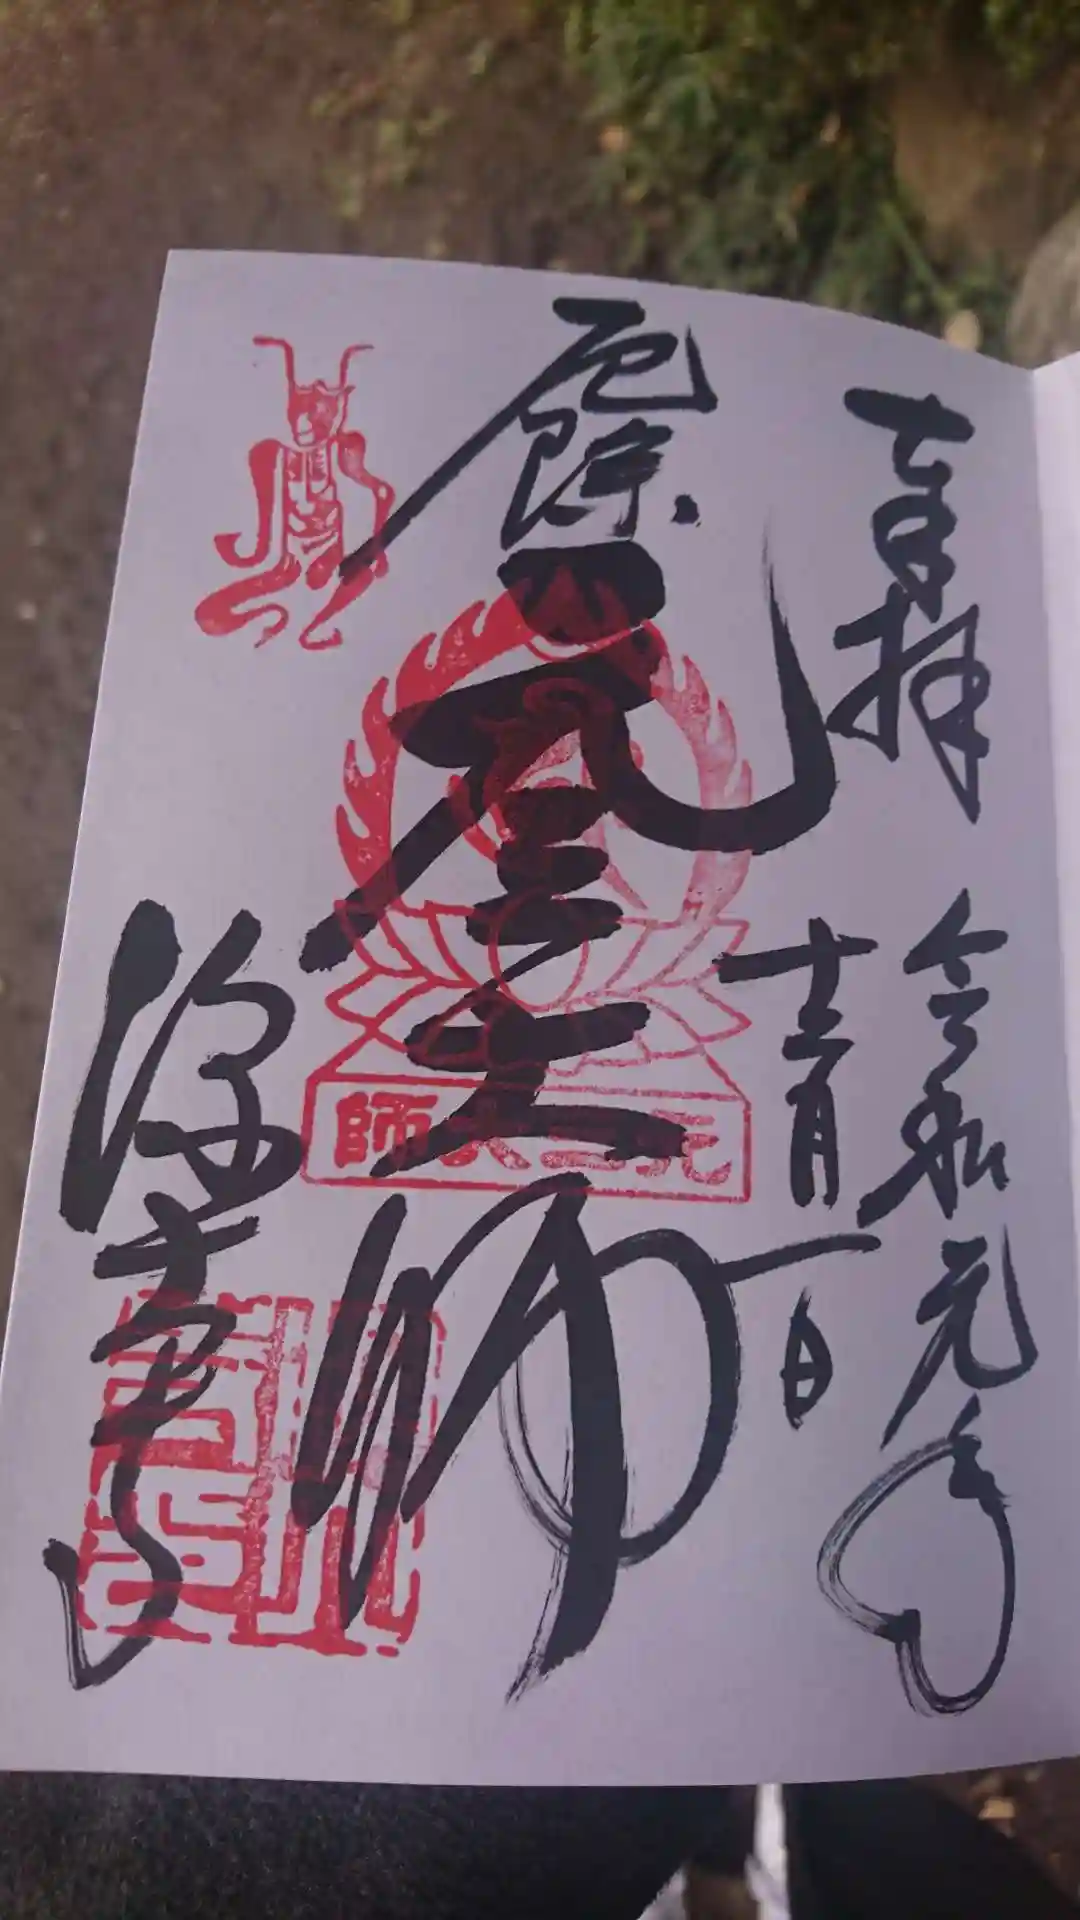 奉拝 令和元年
十二月一日
厄除
元三大師
元三大師
深大寺